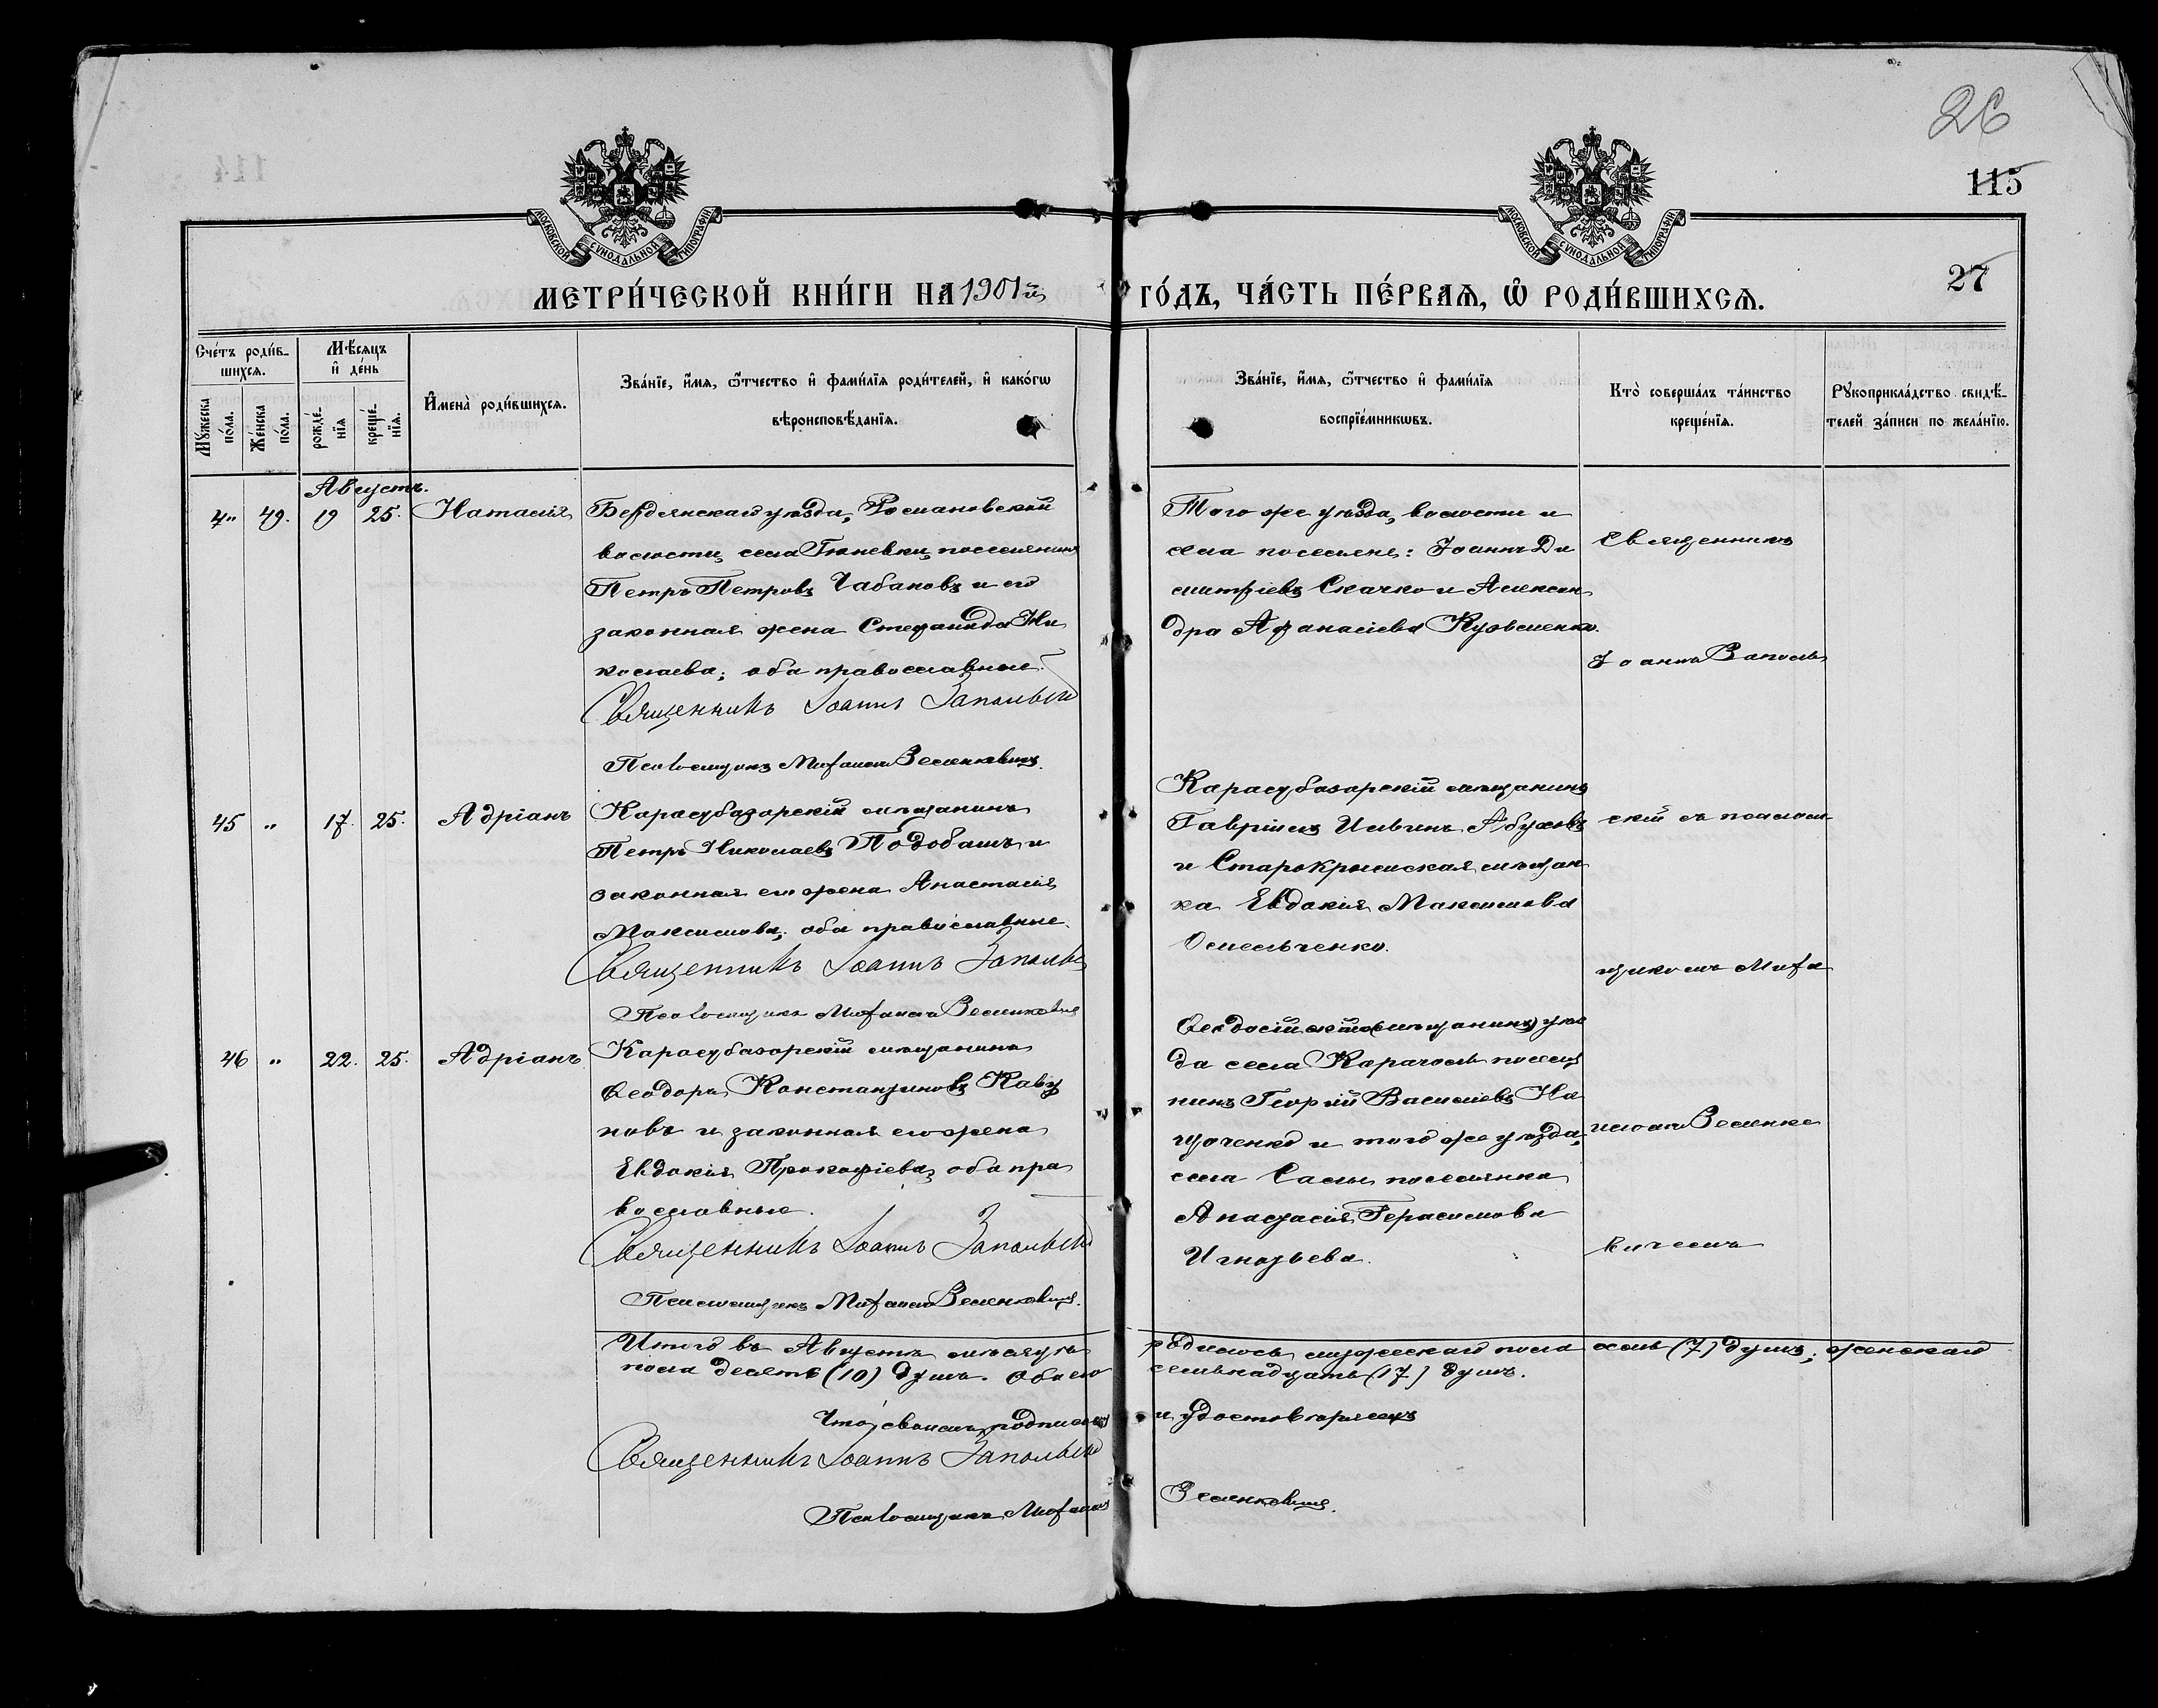 26
115
27
МОСКОВСКОЙ СУНОДАЛЬНОЙ ТИПОГРАФІИ
МОСКОВСКОЙ СУНОДАЛЬНОЙ ТИПОГРАФІИ
МЕТРИ́ЧЕСКОЙ КНИ́ГИ НА 1901й ГО́ДЪ, ЧА́СТЬ ПЕ́РВАѦ, Ѽ РОДИ́ВШИХСѦ.
Сче́тъ роди́в-
шихсѧ.
Мꙋ́жеска
по́ла.
Же́нска
по́ла.
Мѣ́сѧцъ
и҆ де́нь
рожде́-
нїѧ
креще́-
нїѧ.
И҆мена̀ роди́вшихсѧ.
Зва́нїе, и҆́мѧ, ѻ҆́тчество и҆ фами́лїѧ роди́телей, и҆ како́гѡ
вѣроисповѣ́данїѧ.
Зва́нїе, и҆́мѧ, ѻ҆́тчество и҆ фами́лїѧ
воспрїе́мникѡвъ.
Кто̀ соверша́лъ та́инство
креще́нїѧ.
Рꙋкоприкла́дство свидѣ́-
телей за́писи по жела́нїю.
Августъ.
4" 49. 19 25. Наталія
Бердянскаго уѣзда, Романовской
волости, села Гюневки, поселянинъ
Петръ Петровъ Чабановъ и его
законная жена Стефанида Ни
колаева; оба православные.
Священникъ Іоаннъ Запольскій
Псаломщикъ Мифаилъ Зеленкевичъ.
Того же уѣзда, волости и
села поселяне: Іоаннъ Ди
митріевъ Скачко и Алексан
дра Афанасіева Кузьменко.
45 " 17. 25. Адріанъ
Карасубазарскій мѣщанинъ
Петръ Николаевъ Подобашъ и
законная его жена Анастасія
Максимова; оба православные.
Священникъ Іоаннъ Запольскій
Псаломщикъ Мифаилъ Зеленкевичъ
Карасубазарскій мѣщанинъ
Гавріилъ Ильинъ Абузовъ
и Старокрымская мѣщан
ка Евдокія Максимова
Омельченко.
46 " 22. 25. Адріанъ
Карасубазарскій мѣщанинъ
Ѳеодоръ Константиновъ Каву
новъ и законная его жена
Евдокія Прокофіева, оба пра
вославные.
Священникъ Іоаннъ Запольскій
Псаломщикъ Мифаилъ Зеленкевичъ.
Ѳеодосійскаго (мѣщанинъ) уѣз
да села Карагозъ поселя
нинъ Георгій Василіевъ На
и того же уѣзда,
села Салы поселянка
Анастасія Герасимова
Игнатьева.
Священникъ
Іоаннъ Заполь
скій съ псаломщ
щикомъ Мифа
иломъ Зеленке
вичемъ
Итого въ Августѣ мѣсяцѣ родилось мужескаго пола семь (7) душъ; женскаго
пола десять (10) душъ. Обоего семьнадцать (17) душъ.
Что своимъ подписомъ и удостовѣряемъ
Священникъ Іоаннъ Запольскій
Псаломщикъ Мифаилъ Зеленкевичъ.